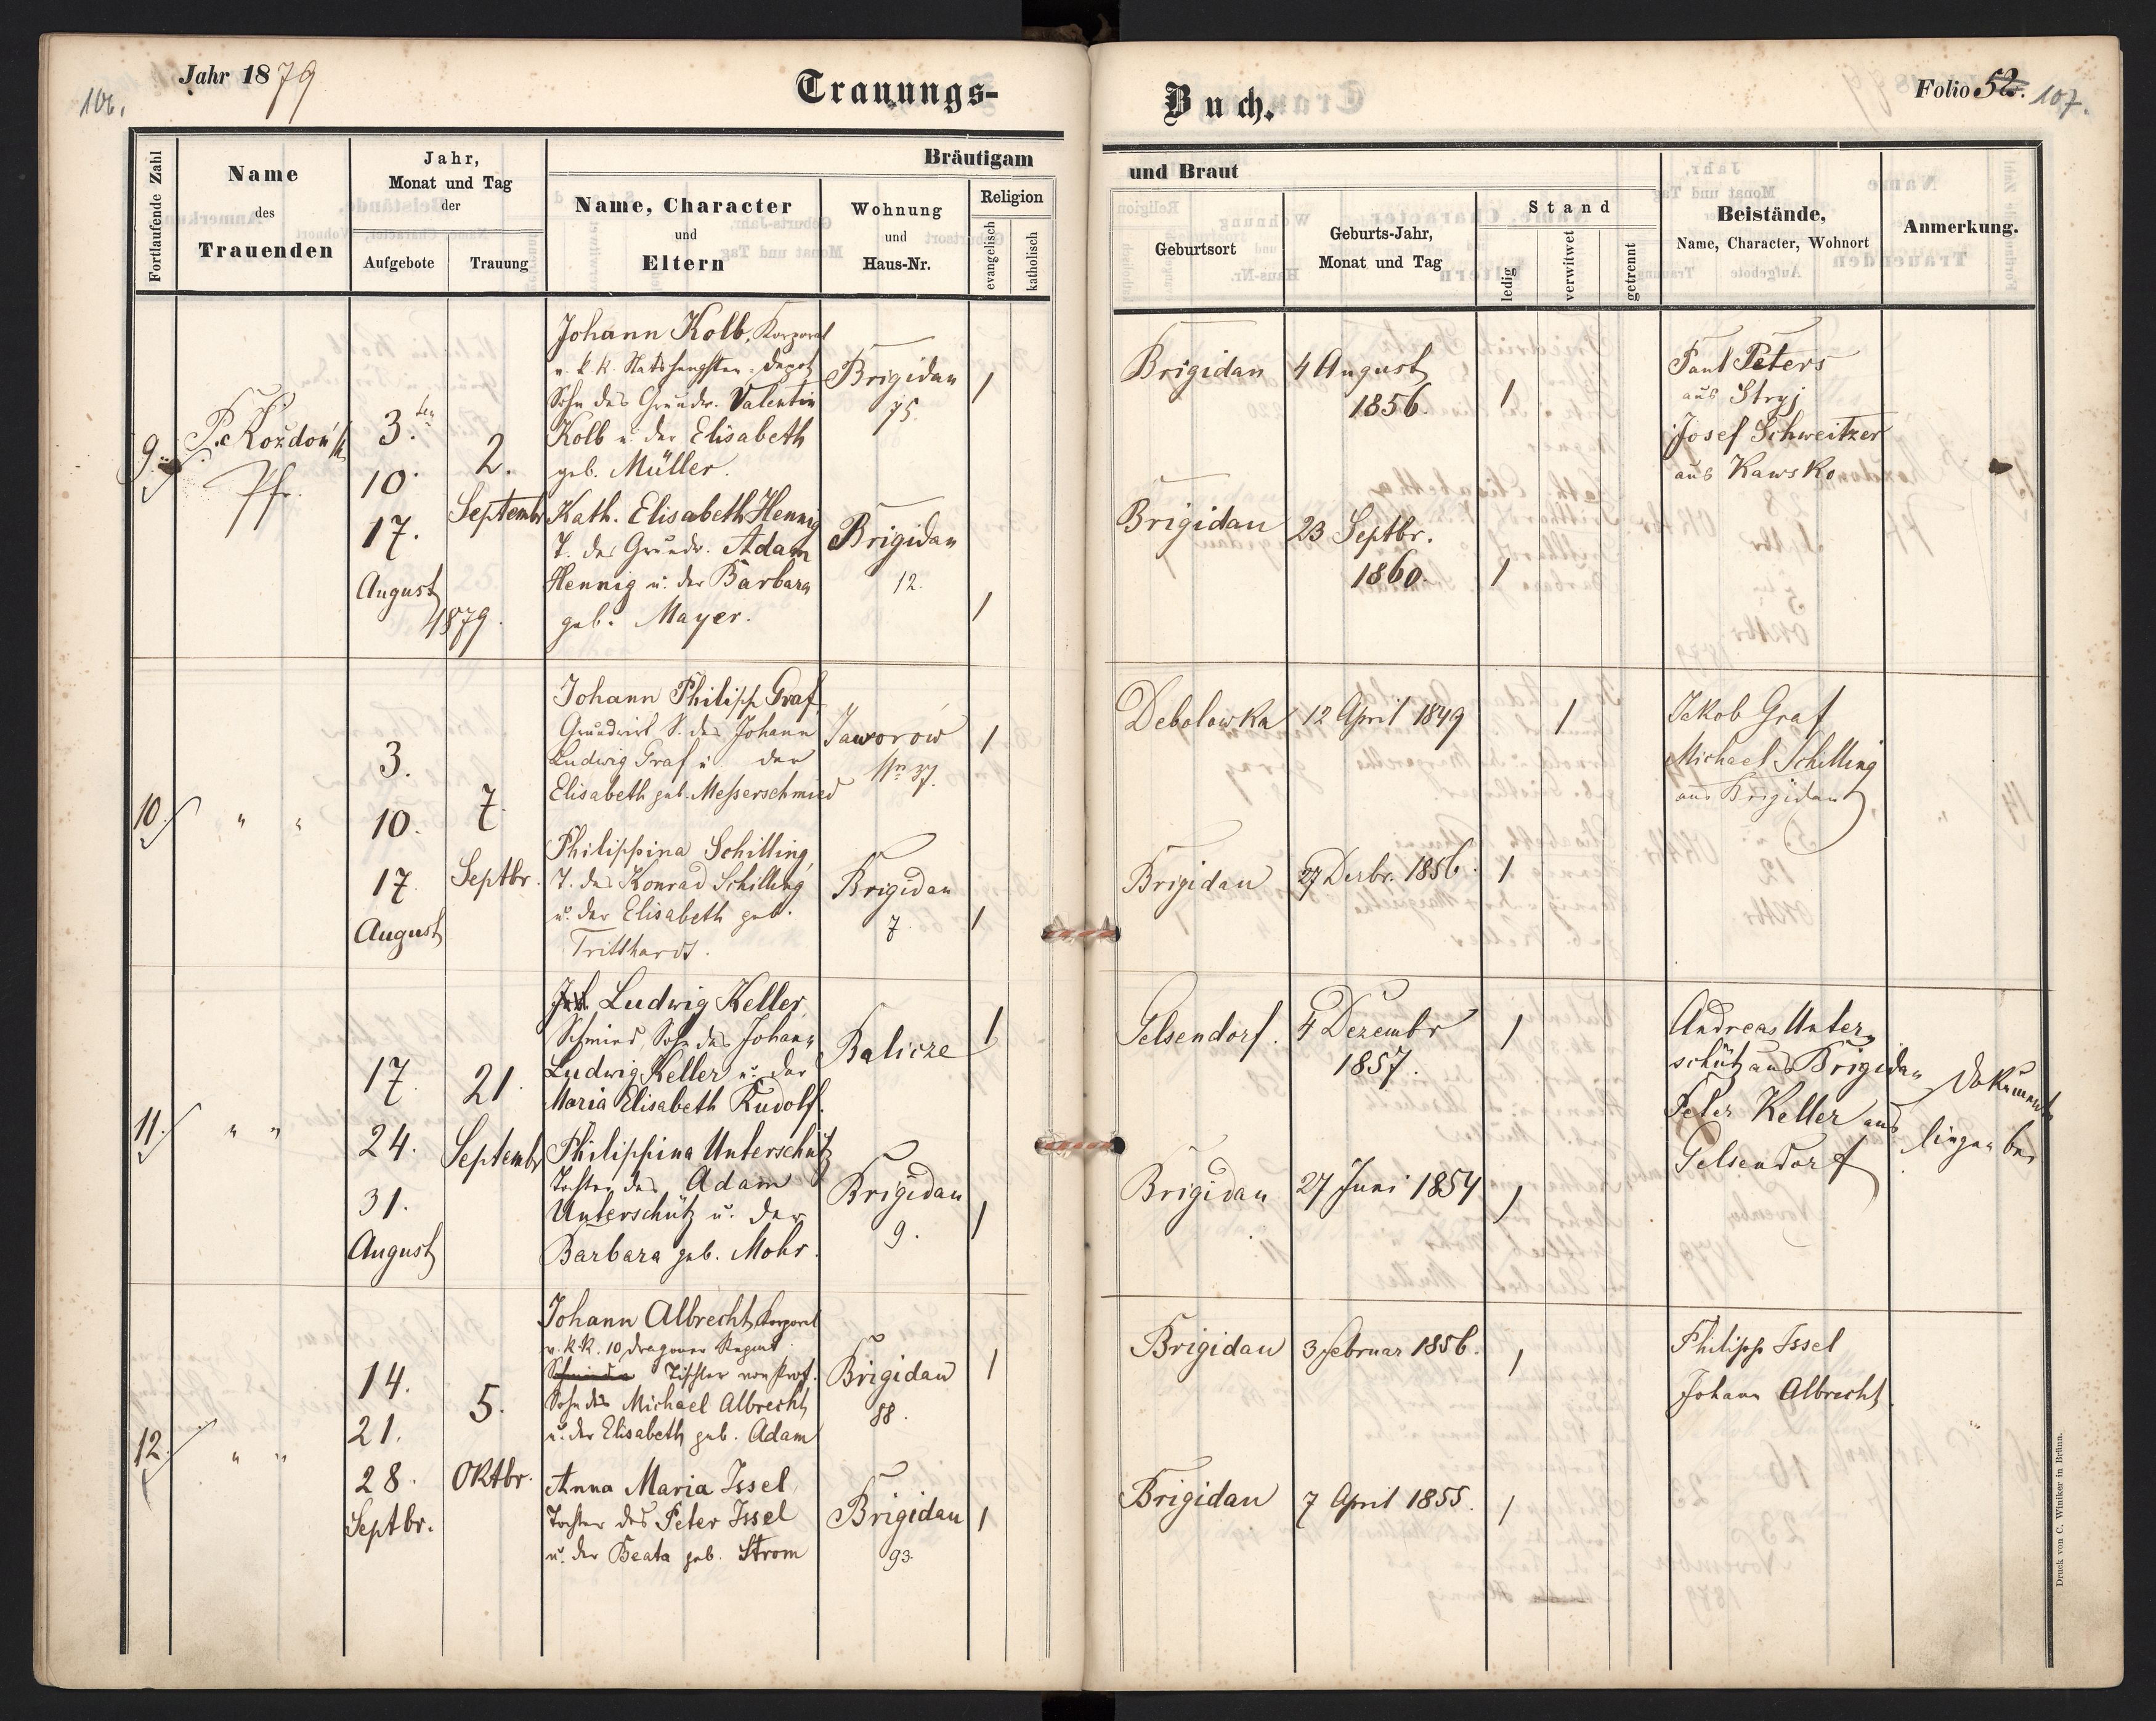 106.
Jahr 1879
Trauungs-
Buch.
Folio 52. 107.
Fortlaufende Zahl
Name
des
Trauenden
Jahr,
Monat und Tag
der
Aufgebote
Trauung
Bräutigam
Name, Character
und
Eltern
Wohnung
und
Haus-Nr.
Religion
evangelisch
katholisch
und Braut
Geburtsort
Geburts-Jahr,
Monat und Tag
Stand
ledig
verwitwet
getrennt
Beistände,
Name, Character, Wohnort
Anmerkung.
9.
Pfr.
3.ten
10.
17.
August
1879.
2.
Septembr
Johann Kolb, Korporal
v. k. k. Staatshengsten-Depot
Sohn des Grundw. Valentin
Kolb u. der Elisabeth
geb. Müller.
Kath. Elisabeth Hennig
T. des Grundw. Adam
Hennig u. der Barbara
geb. Mayer.
Brigidau
75.
1
Brigidau
12.
1
Brigidau
4 August
1856.
1
Brigidau
23 Septbr.
1860.
1
Paul Peters
aus Stryj
Josef Schweitzer
aus Kawsko
10.
" "
3.
10.
17.
August
7.
Septbr.
Johann Philipp Graf,
Grundwirt S. des Johann
Ludwig Graf u. der
Elisabeth geb. Meßerschmied
Philippina Schilling,
T. des Konrad Schilling
u. der Elisabeth geb.
Tritthardt.
Jaworow
Nr 37.
1
Brigidau
7.
1
Debolowka
12 April 1849
1
Brigidau
27 Dezbr. 1856.
1
Jakob Graf
Michael Schilling
aus Brigidau
11.
" "
17.
24.
31.
August
21.
Septembr
Ludwig Keller,
Schmied Sohn des Johann
Ludwig Keller u. der
Maria Elisabeth Rudolf.
Philippina Unterschütz
Tochter des Adam
Unterschütz u. der
Barbara geb. Mohr.
Balicze
1
Brigidau
9.
1
Gelsendorf.
4 Dezembr
1857.
1
Brigidau
27 Juni 1854
1
Andreas Unter-
schütz aus Brigidau
Peter Keller aus
Gelsendorf
Dokumente
liegen bei
12.
" "
14.
21.
28.
Septbr.
5.
Oktbr.
Johann Albrecht, Korporal
v. k.k. 10 Dragoner Regmt
Tischler von Prof.
Sohn des Michael Albrecht
u. der Elisabeth geb. Adam
Anna Maria Issel,
Tochter des Peter Issel
u. der Beata geb. Strom
Brigidau
88.
1
Brigidau
93.
1
Brigidau
3 Februar 1856.
1
Brigidau
7 April 1855.
1
Philipp Issel
Johann Albrecht.
Druck von C. Winiker in Brünn.